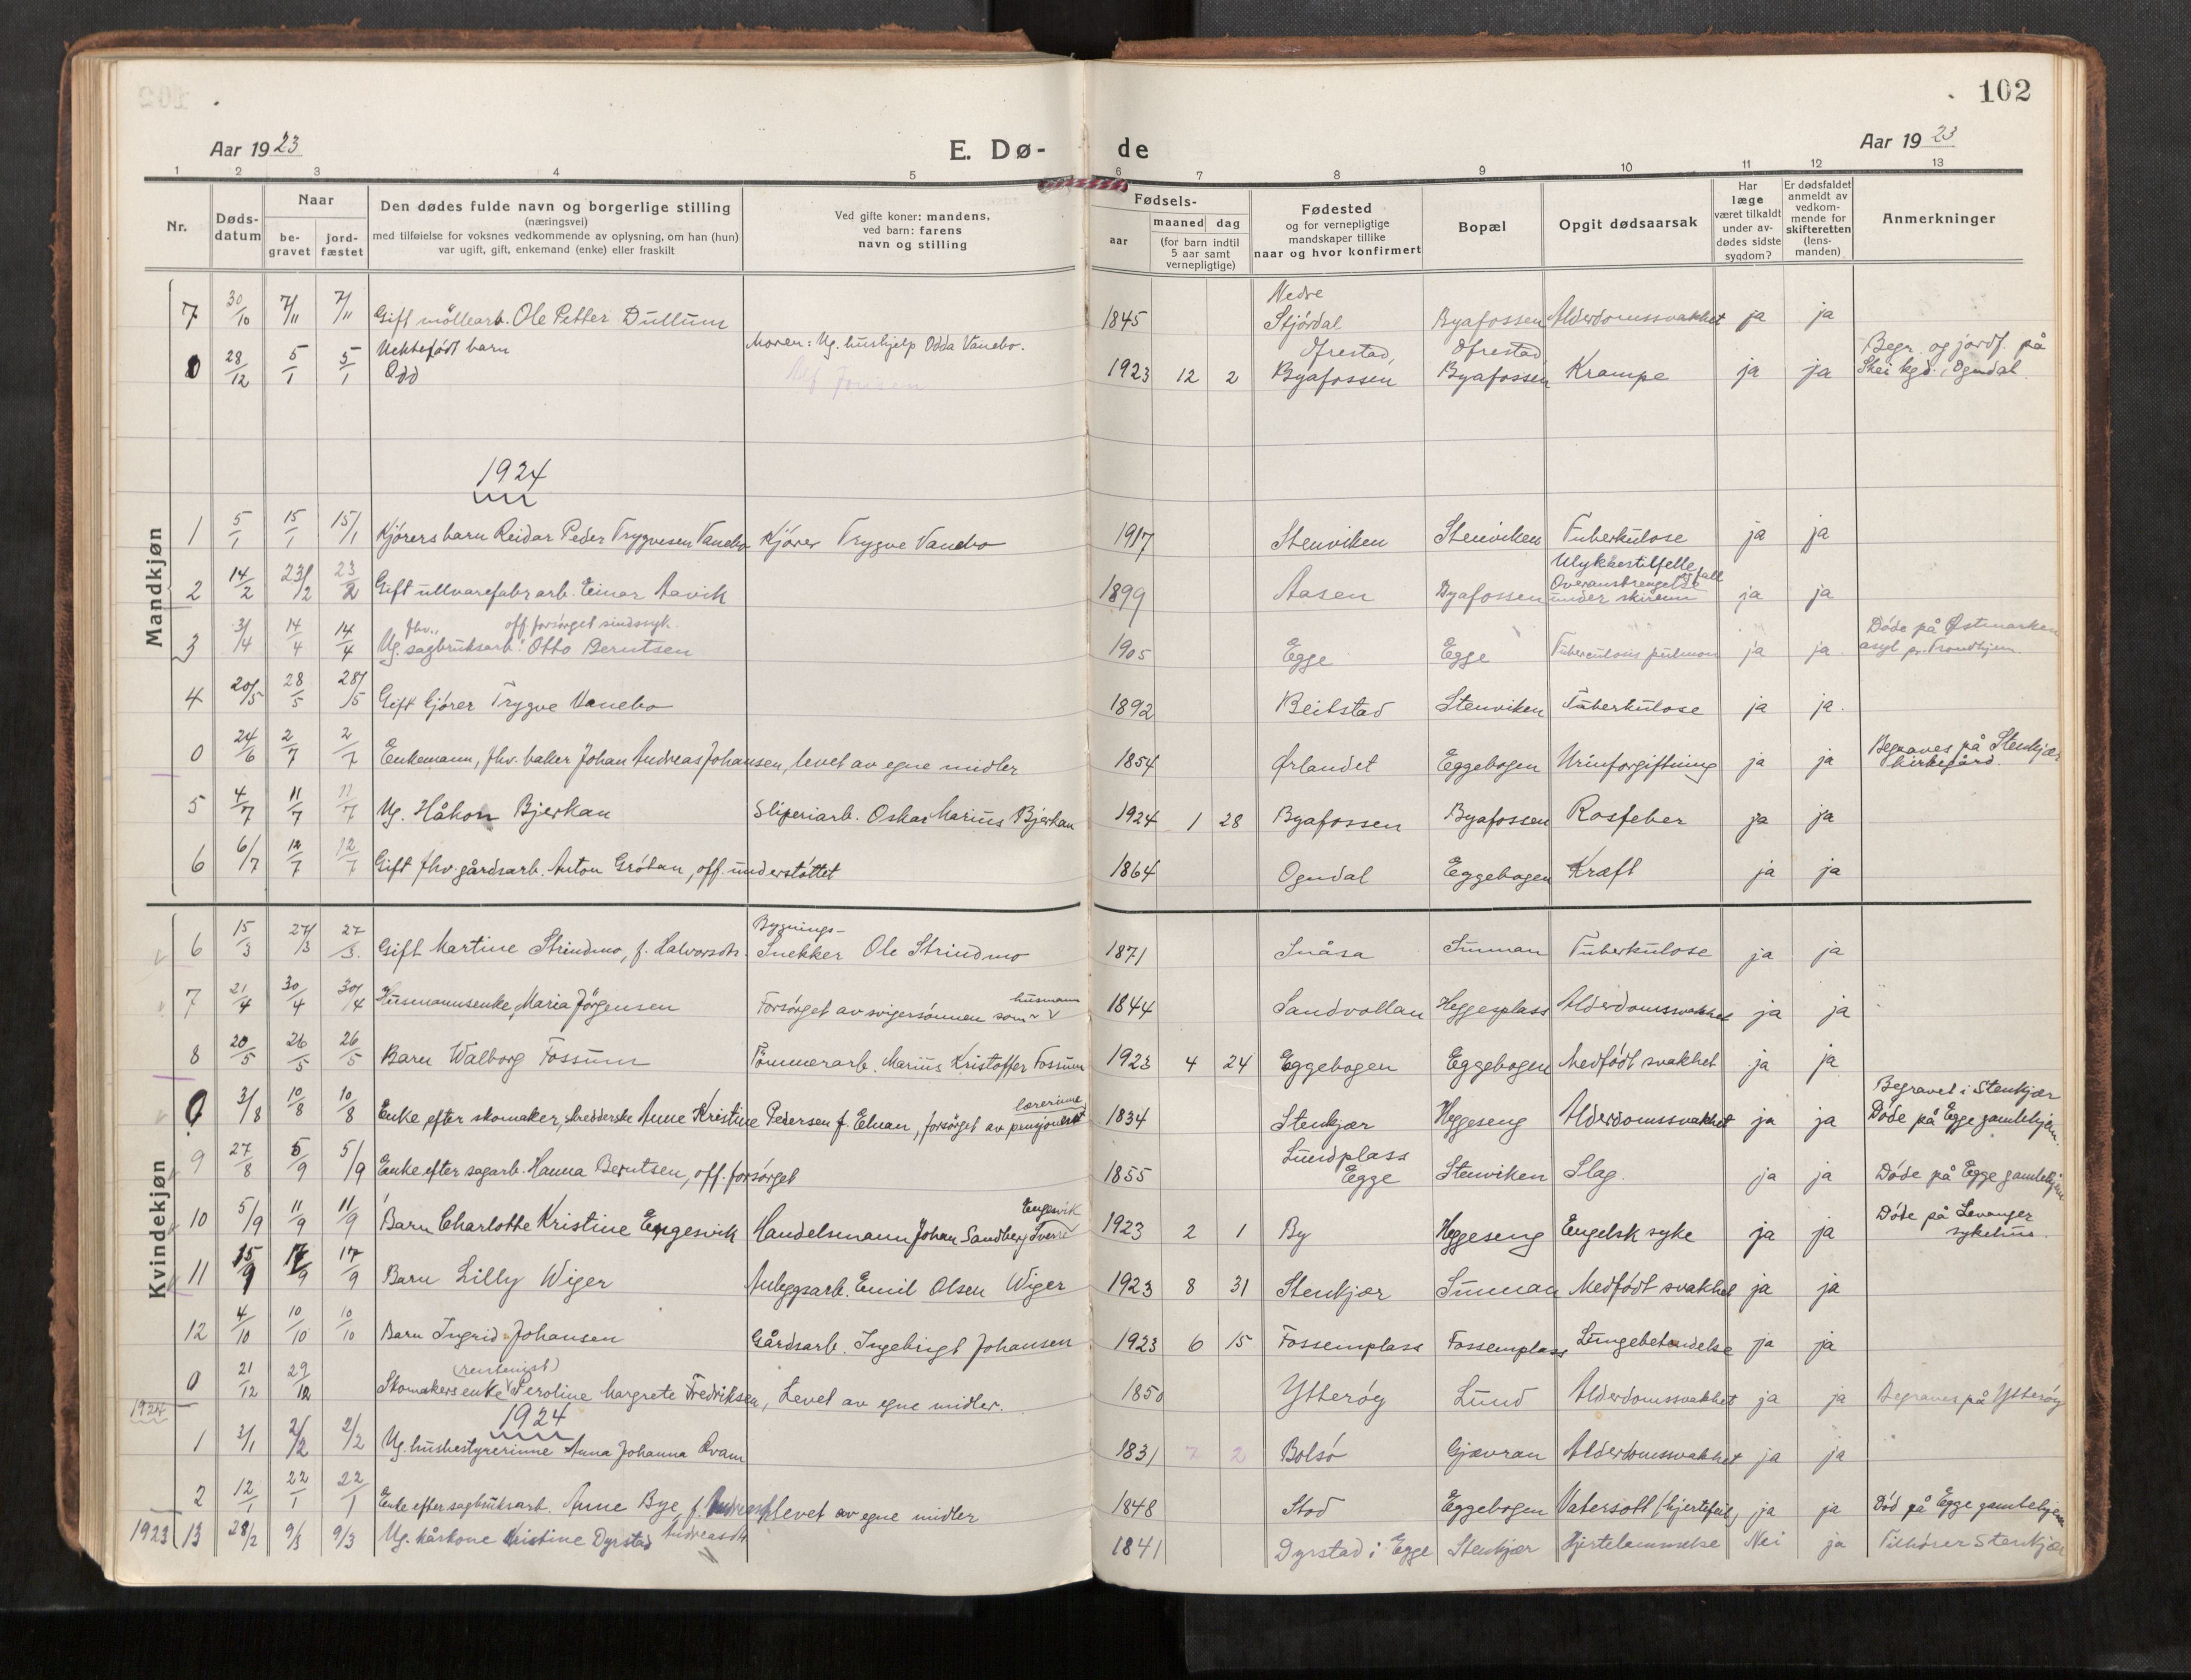 102
Aar 1923
E. Dø-
de
Aar 1923
1 2 3 4 5 6 7 8 9 10 11 12 13
Nr.
Døds-
datum
Naar
be-
gravet
jord-
fæstet
Den dødes fulde navn og borgerlige stilling
(næringsvei)
med tilføielse for voksnes vedkommende av oplysning, om han (hun)
var ugift, gift, enkemand (enke) eller fraskilt
Ved gifte koner: mandens,
ved barn: farens
navn og stilling
Fødsels-
aar
maaned dag
(for barn indtil
5 aar samt
vernepligtige)
Fødested
og for vernepligtige
mandskaper tillike
naar og hvor konfirmert
Bopæl
Opgit dødsaarsak
Har
læge
været tilkaldt
under av-
dødes sidste
sygdom?
Er dødsfaldet
anmeldt av
vedkom-
mende for
skifteretten
(lens-
manden)
Anmerkninger
Mandkjøn
Nedre
7 30/10 7/11 7/11 Gift möllearb. Ole Petter Dullum 1845 Stjórdal Byafossen Alderdomssvakhet ja ja
Uektefódt barn Moren: Ug. hushjelp Odda Vanebo. Ófrestad, Ófrestad, Begr. og jordf. på
0 28/12 5/1 5/1 Odd 1923 12 2 Byafossen Byafossen Krampe ja ja Skei kgd. i Ogndal
1924
1 5/1 15/1 15/1 Kjórers barn Reidar Peder Trygvesen Vanebo Kjórer Trygve Vanebo 1917 Stenviken Stenviken Tuberkulose ja ja
Ulykkestilfelle
2 14/2 23/2 23/2 Gift ullvarefabr.arb. Einar Aavik 1899 Aasen Byafossen Overanstrengelse under skirenn ja ja
fhv. off. forsórget sindssyk. Dóde på Østmarken
3 3/4 14/4 14/4 Ug. sagbruksarb. Otto Berntsen 1905 Egge Egge Tuberculosis pulmon ja ja asyl pr. Trondhjem
4 20/5 28/5 28/5 Gift kjórer Trygve Vanebo 1892 Beitstad Stenviken Tuberkulose ja ja.
0 24/6 2/7 2/7 Enkemann, fhv. baker Johan Andreas Johansen, levet av egne midler 1854 Ørlandet Eggebogen Urinforgiftning ja ja Begraves på Stenkjær
kirkegård.
5 4/7 11/7 11/7 Ug. Håkon Bjerkan Sliperiarb. Oskar Marius Bjerkan 1924 1 28 Byafossen Byafossen Rosfeber ja ja
6 6/7 12/7 12/7 Gift fhv. gårdsarb. Anton Grótan, off. understóttet 1864 Ogndal Eggebogen Kræft ja ja
Kvindekjøn
Bygnings-
6 15/3 27/3 27/3. Gift Martine Strindmo, f. Halvorsdtr. Snekker Ole Strindmo 1871 Snåsa Sunnan Tuberkulose ja ja
husmann
7 21/4 30/4 30/4 Husmannsenke Maria Jörgensen Forsórget av svigersónnen som 1844 Sandvollan Heggesplass Alderdomssvakhet ja ja
8 20/5 26/5 26/5 Barn Walborg Fossum Tömmerarb. Marius Kristoffer Fossum 1923 4 24 Eggebogen Eggebogen Medfódt svakhet ja ja
lærerinne Begravet i Stenkjær
0 3/8 10/8 10/8 Enke efter skomaker, skredderske Anne Kristine Pedersen f. Elnan, forsórget av pensjonert 1834 Stenkjær Heggeseng Alderdomssvakhet ja ja Dóde på Egge gamlehjem.
Lundplass
9 27/8 5/9 5/9 Enke efter sagarb. Hanna Berntsen, off. forsórget 1855 Egge Stenviken Slag. ja ja Dóde på Egge gamlehjem
Engesvik Dóde på Levanger
10 5/9 11/9 11/9 Barn Charlotte Kristine Engesvik Handelsmann Johan Sandberg Sverre 1923 2 1 By Heggeseng Engelsk syke ja ja sykehus.
11 15/9 17/9 17/9 Barn Lilly Wiger Anleggsarb. Emil Olsen Wiger 1923 8 31 Stenkjær Sunnan Medfódt svakhet ja ja
12 4/10 10/10 10/10 Barn Ingrid Johansen Gårdsarb. Ingebrigt Johansen 1923 6 15 Fossemplass Fossemplass Lungebetendelse ja ja
(rentenist)
0 21/12 29/12 Skomakersenke Peroline Margrete Fredriksen, Levet av egne midler. 1850 Ytteróy Lund Alderdomssvakhet ja ja Begraves på Ytteróy
1924
1924
1 3/1 2/2 2/2 Ug. husbestyrerinne Anna Johanna Kvam 1831 7 2 Bolsó Gjævran Alderdomssvakhet ja ja
2 12/1 22/1 22/1 Enke efter sagbruksarb. Anne Bye, f. levet av egne midler 1848 Stod Eggebogen Vatersott (hjertefeil) ja ja Dód på Egge gamlehjem
1923 13 28/2 9/3 9/3 Ug. kårkone Kristine Dyrstad Andreasdtr 1841 Dyrstad i Egge Stenkjær Hjertelammelse Nei ja Tilhórer Stenkjær